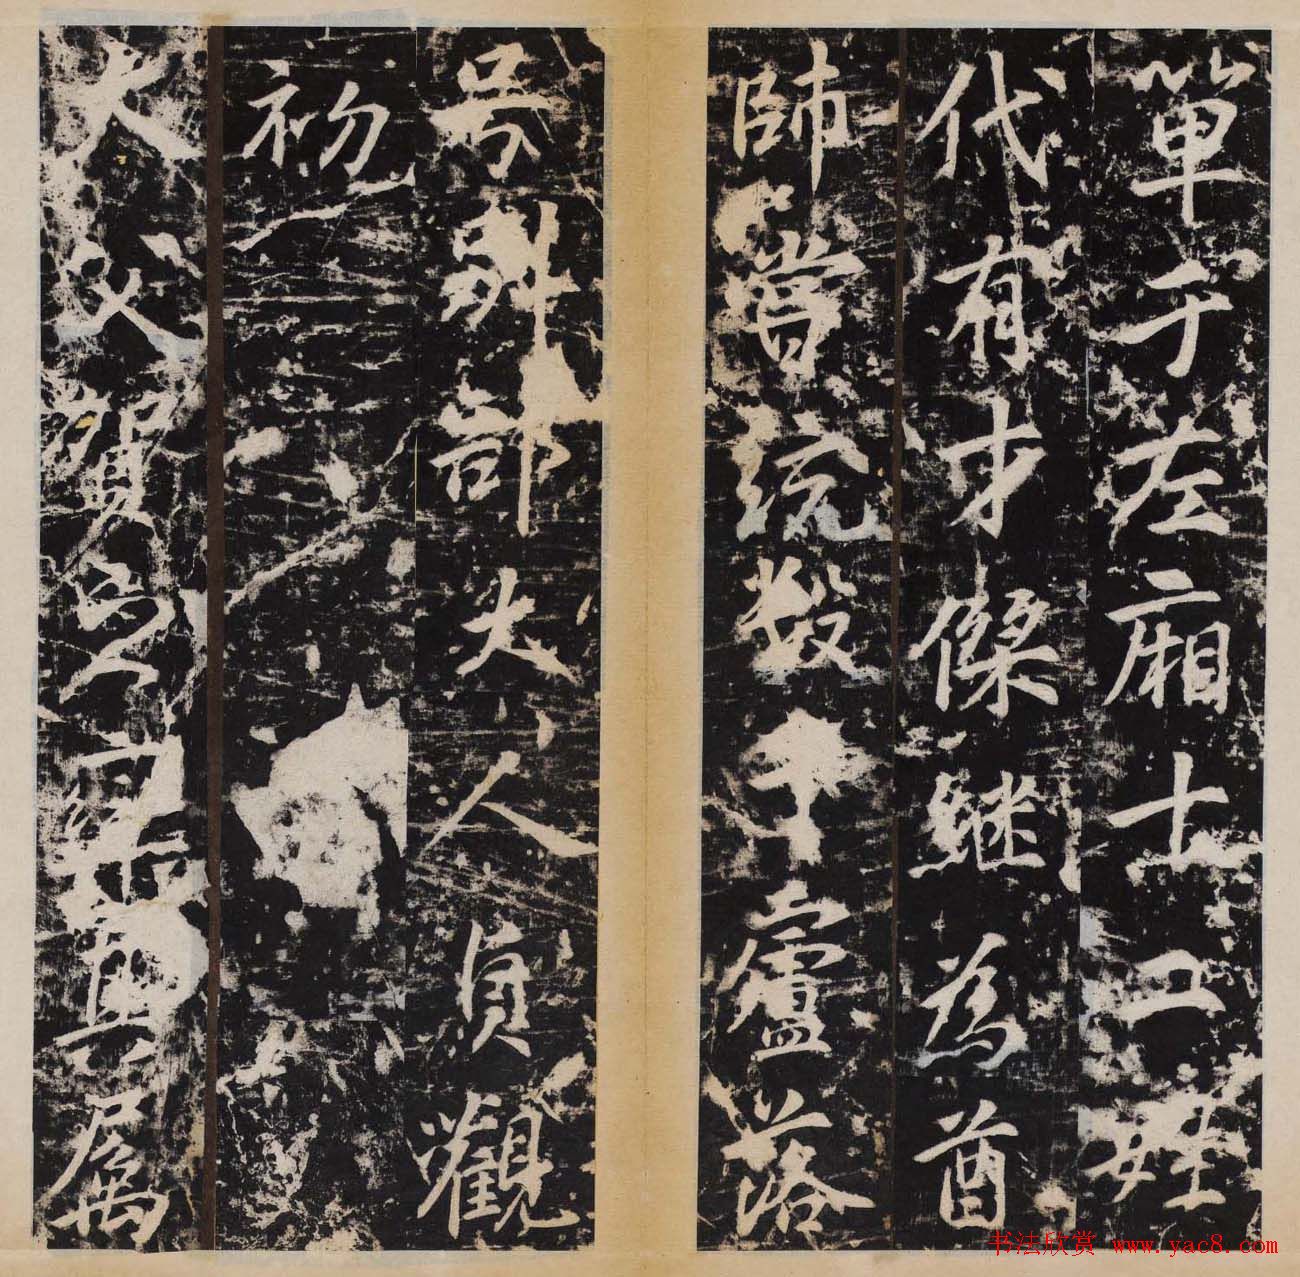 單于左廂十二姓
代有才傑繼為酋
帥嘗統數千廬落
号別部大人貞觀
初
大父賀属
书法欣赏 www.yac8.com